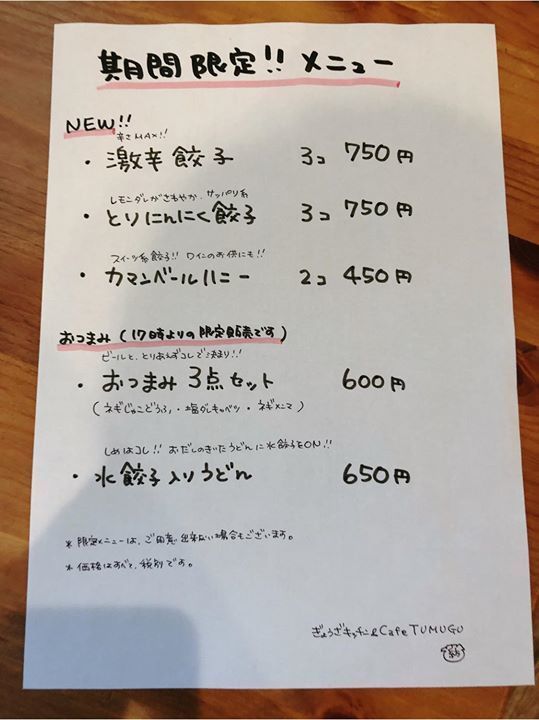 期間限定!! メニュー
NEW!!
辛さMAX!!
・激辛餃子 3コ 750円
レモンダレがさわやか、サッパリ系
・とりにんにく餃子 3コ 750円
スイーツ系餃子!! ワインのお供にも!!
・カマンベールハニー 2コ 450円
おつまみ(17時よりの限定販売です)
ビールと、とりあえずコレで決まり!!
・おつまみ3点セット 600円
(ネギじゃこどうふ・塩ダレキャベツ・ネギメンマ)
しめはコレ!! おだしのきいたうどんに水餃子をON!!
・水餃子入りうどん 650円
※限定メニューは、ご用意出来ない場合もございます。
※価格はすべて、税別です。
ぎょうざキッチン&Cafe TUMUGU